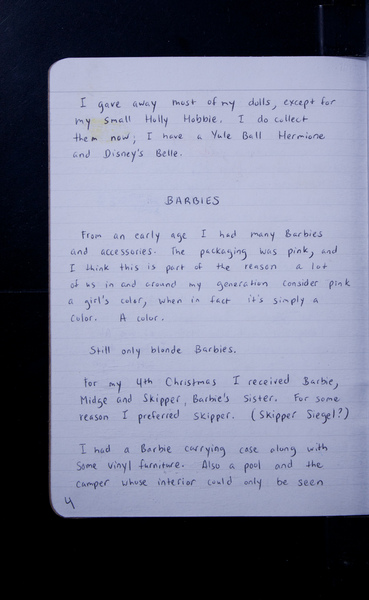 I gave away most of my dolls, except for
my small Holly Hobbie. I do collect
them now; I have a Yule Ball Hermione
and Disney's Belle.
BARBIES
From an early age I had many Barbies
and accessories. The packaging was pink, and
I think this is part of the reason a lot
of us in and around my generation consider pink
a girl's color, when in fact it's simply a
color. A color.
Still only blonde Barbies.
For my 4th Christmas I received Barbie,
Midge and Skipper, Barbie's Sister. For some
reason I preferred Skipper. (Skipper Siegel?)
I had a Barbie carrying case along with
some vinyl furniture. Also a pool and the
camper whose interior could only be seen
4